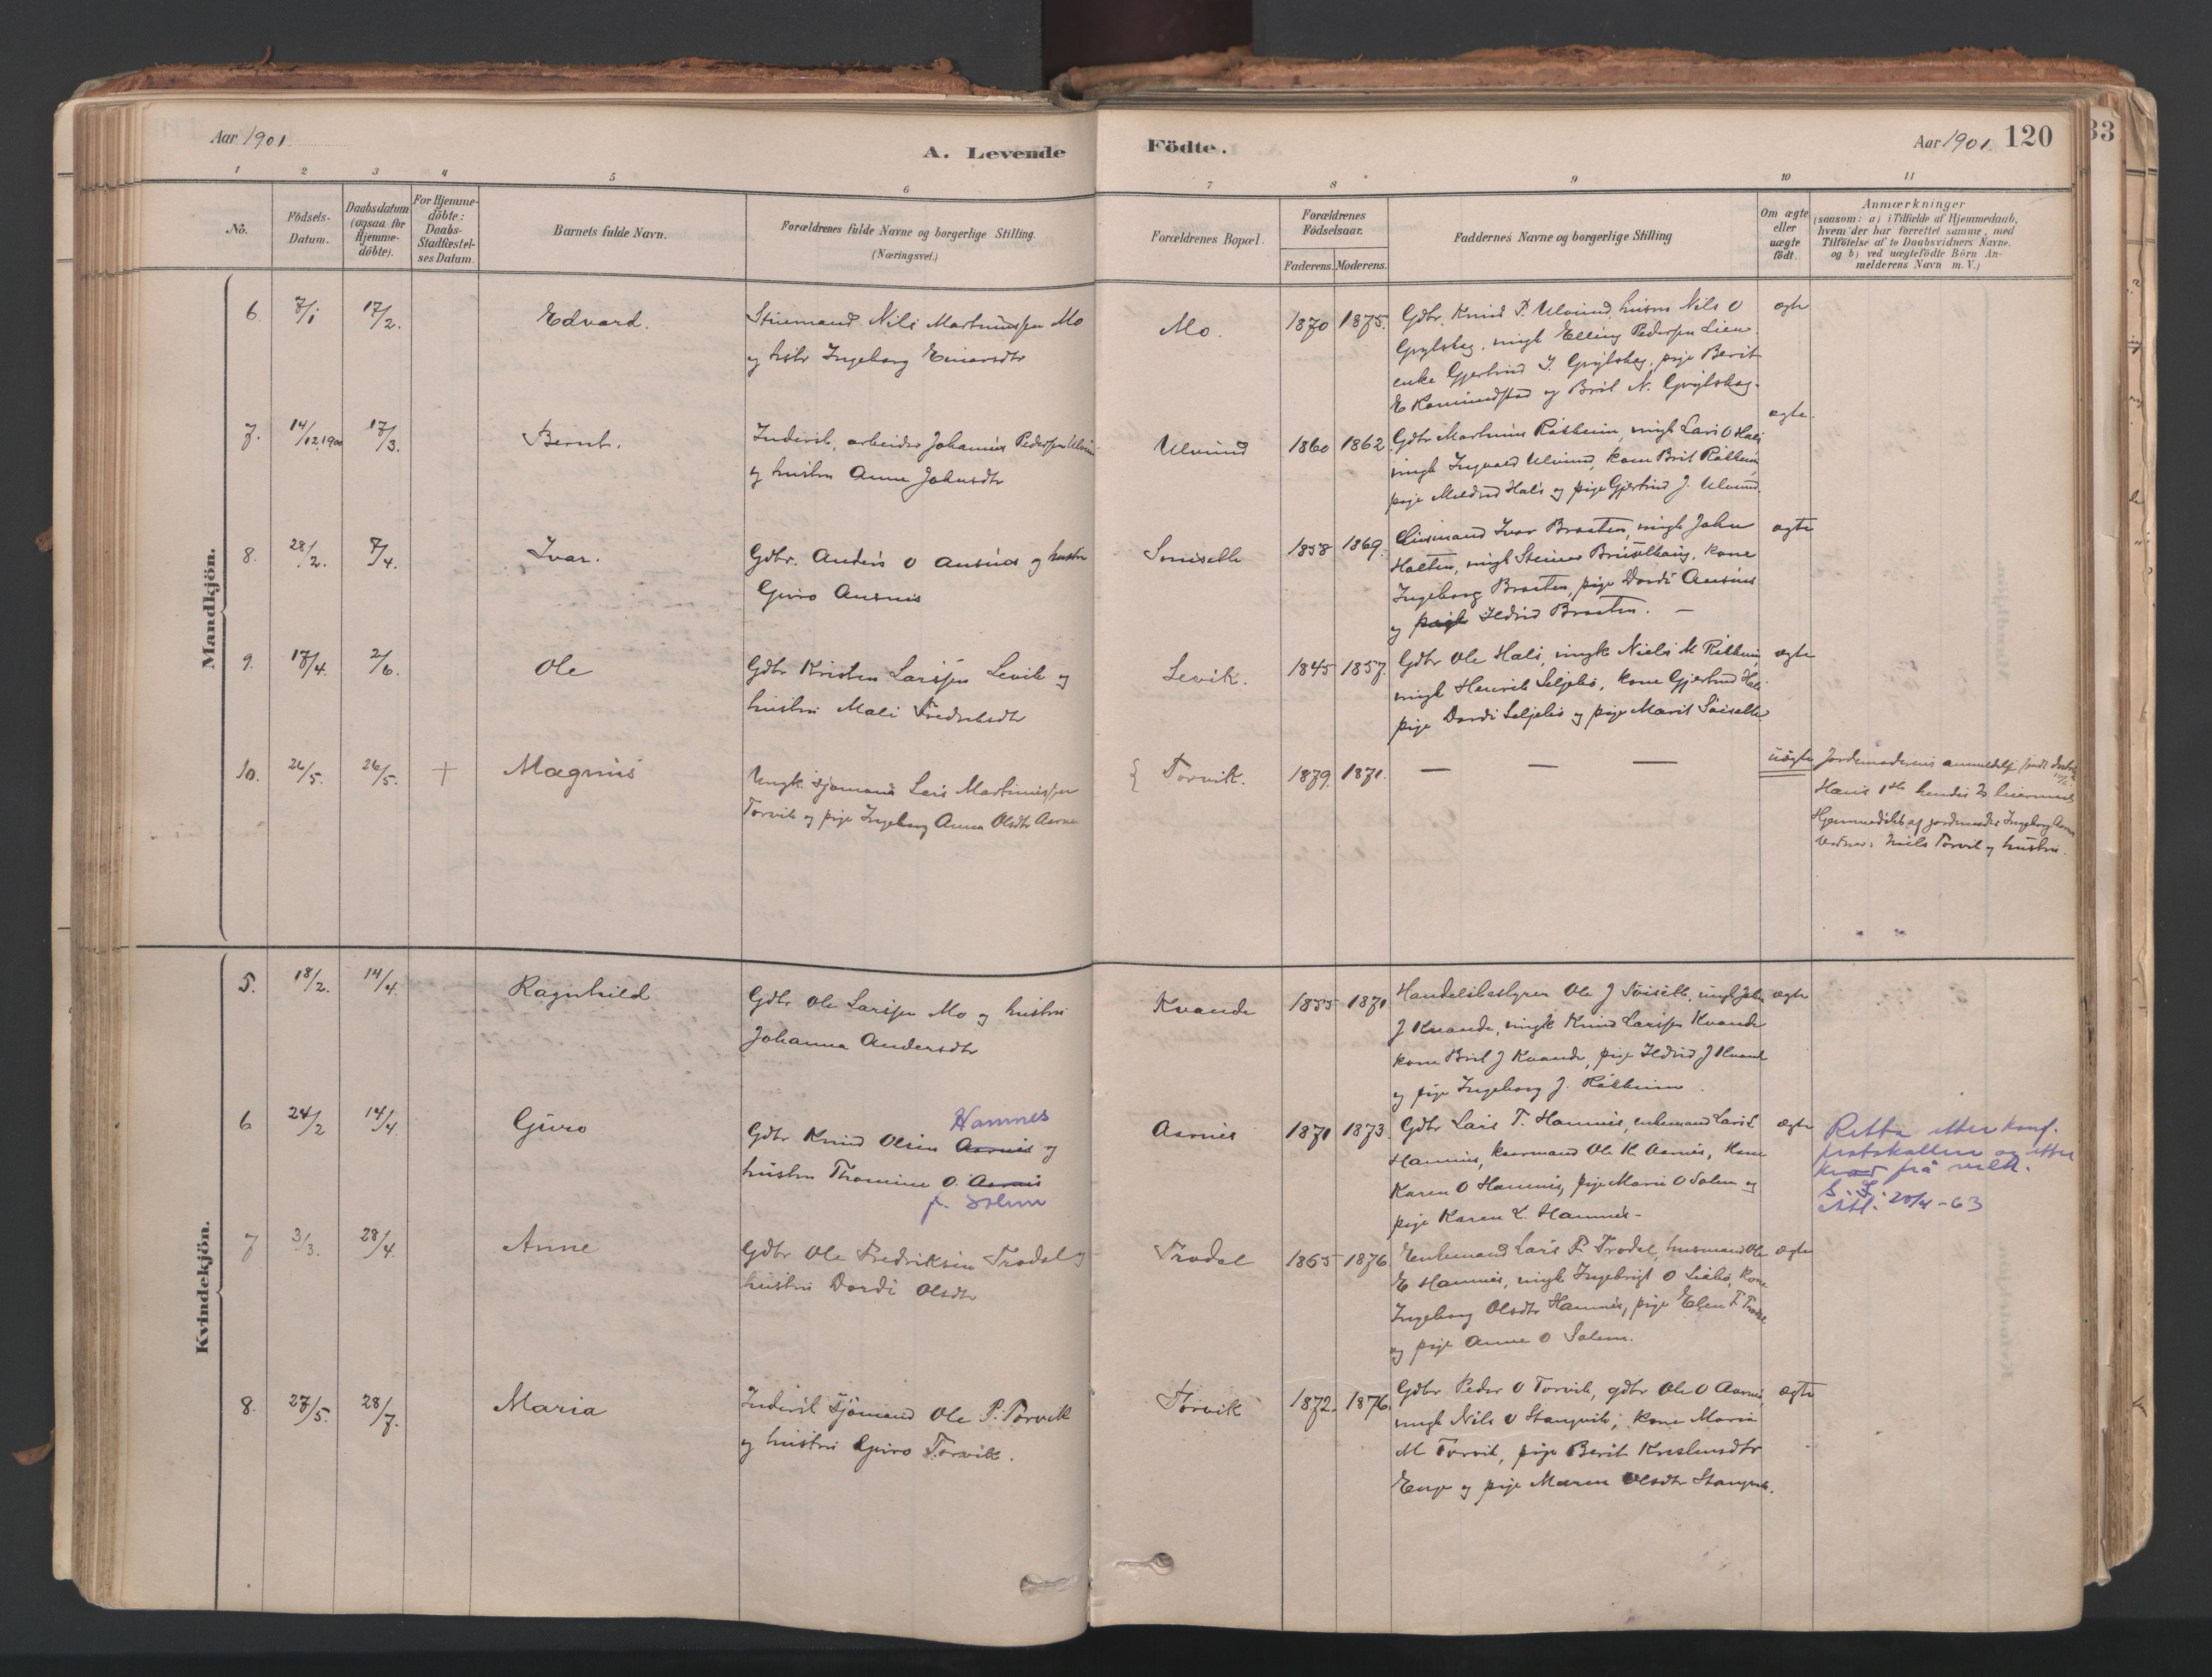 Aar 1901
A. Levende
Födte.
Aar 1901. 120
33
1 2 3 4 5 6 7 8 9 10 11
No.
Födsels-
Datum.
Daabsdatum
(ogsaa for
Hjemme-
döbte).
For Hjemme-
döbte:
Daabs-
Stadfæstel-
ses Datum.
Barnets fulde Navn.
Forældrenes fulde Navne og borgerlige Stilling.
(Næringsvei.)
Forældrenes Bopæl.
Forældrenes
Födselsaar.
Faderens. Moderens.
Faddernes Navne og borgerlige Stilling
Om ægte
eller
uægte
födt.
Anmærkninger
(saasom: a) i Tilfælde af Hjemmedaab,
hvem der har forrettet samme, med
Tilföielse af to Daabsvidners Navne.
og b) ved uægtefödte Börn An-
melderens Navn m. V.)
Mandkjön.
6. 7/1 17/2. Edvard.
Nils Mo
og Ingeborg Einarsdtr
Mo. 1870 1875.
Gdbr. Knud P. Ulvund, husm Nils O
ungk Elling Pedersen
enke Gjertrud pige Berit
og Brit N.
ægte
7. 14/12.1900 17/3. Bernt.
Inderst, arbeider Johannes Pedersen Ulvund
og hustru Anne Johnsdtr
Ulvund 1860 1862
Gdbr Martinus ungk Lars O Hals
ungk Ingvald Ulvund, kone Brit
pige Hals og pige Gjertrud J. Ulvund.
ægte.
8. 28/2. 7/4. Ivar.
Gdbr. Anders O Ausnes og hustru
Guro Ausnes
1858 1869.
Ivar Braaten, ungk John
Halten, ungk Steinar kone
Ingeborg Braaten, pige Dordi Ausnes
og Ildrid Braaten. —
ægte
9. 17/4. 2/6. Ole
Gdbr Kristen Larssen Levik og
hustru Mali Fredriksdtr
Levik. 1845 1857.
Gdbr Ole Hals, ungk Niels M
ungk Henrik Seljebö, kone Gjertrud Hals
pige Dordi Seljebö og pige Marit
ægte
10. 26/5. 26/5. + Magnus
Ungk. sjömand Lars Martinussen
Torvik og pige Ingeborg Anna Olsdtr Aarnes
{ Torvik. 1879. 1871. — — —
uægte
Jordemoderens anmeldelse
Hans 1ste hendes 2
Hjemmedöbt af jordmoder Ingeborg Aarnes
Vidner: Niels Torvik og hustru.
Kvindekjön.
5. 18/2. 14/4. Ragnhild
Gdbr Ole Larssen Mo og hustru
Johanna Andersdtr
Kvande 1855 1871
Handelsbestyrer Ole J ungk John
J Kvande, ungk Knud Larssen Kvande
kone Brit J Kvande, pige Ildrid J Kvande
og pige Ingeborg J.
ægte
6 24/2 14/4 Guro
Hamnes
Gdbr Knud Olsen Aarnes og
hustru Thomine O. Aarnes
f. Solem
Aarnes 1871 1873.
Gdbr Lars T. Hamnes, enkemand Lars L
Hamnes, kaarmand Ole K Aarnes, kone
Karen O Hamnes, pige Marie O Solem og
pige Karen L. Hamnes-
ægte
Retta etter konf.
protokollen og etter
krav frå
20/4-63
7 3/3. 28/4. Anne
Gdbr Ole Fredriksen Trodal og
hustru Dordi Olsdtr
Trodal 1865 1876.
Enkemand Lars F. Trodal, husmand Ole
E Hamnes, ungk Ingebrigt O kone
Ingeborg Olsdtr Hamnes, pige Elen F Trodal
og pige Anne O Solem.
ægte
8. 27/5. 28/7. Maria
Inderst Sjömand Ole P. Torvik
og hustru Guro Torvik.
Torvik 1872. 1876.
Gdbr Peder O Torvik, gdbr Ole O Aarnes,
ungk Nils O Stangvik, kone Maria
M Torvik, pige Berit Kristensdtr
Enge og pige Maren Olsdtr Stangvik.
ægte